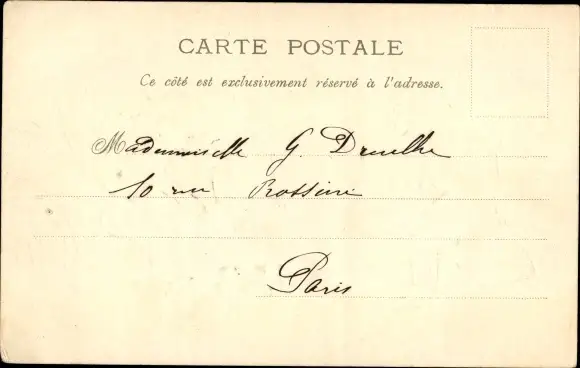 CARTE POSTALE
Ce côté est exclusivement réservé à l'adresse.
Mademoiselle G. Druelhe
10 rue Rossini
Paris